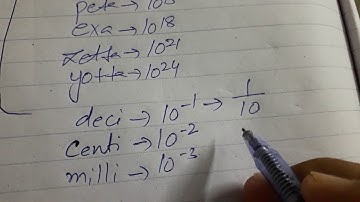 peta → 10^15
exa → 10^18
zetta → 10^21
yotta → 10^24
deci → 10^-1 → 1/10
Centi → 10^-2
milli → 10^-3